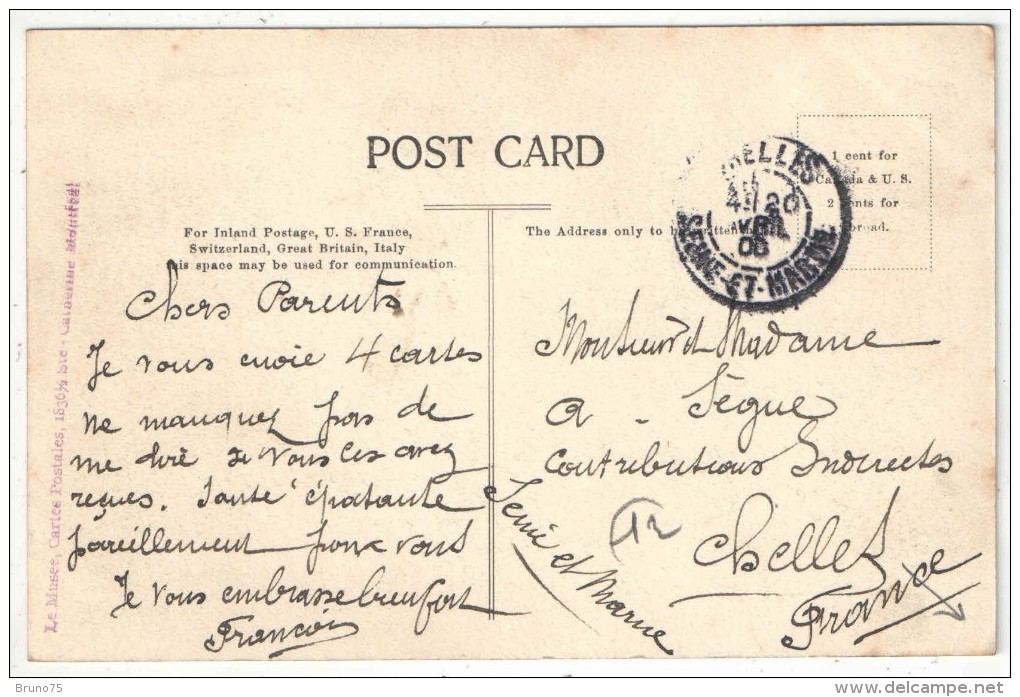 POST CARD
1 cent for
Canada & U. S.
2 cents for
abroad.
CHELLES
4E 20
AVRIL
06
SEINE-ET-MARNE
For Inland Postage, U. S. France,
Switzerland, Great Britain, Italy
this space may be used for communication.
The Address only to be written
Le Musée, Cartes Postales, 1836½ Ste - Catherine Montréal
Chers Parents
Je vous envoie 4 cartes
ne manquez pas de
me dire si vous les avez
reçues. Santé épatante
pareillement pour vous
Je vous embrasse bien fort
François
Monsieur et Madame
A. Ségue
Contributions Indirectes
Chelles
Seine et Marne
France
12
Bruno75
www.delcampe.net